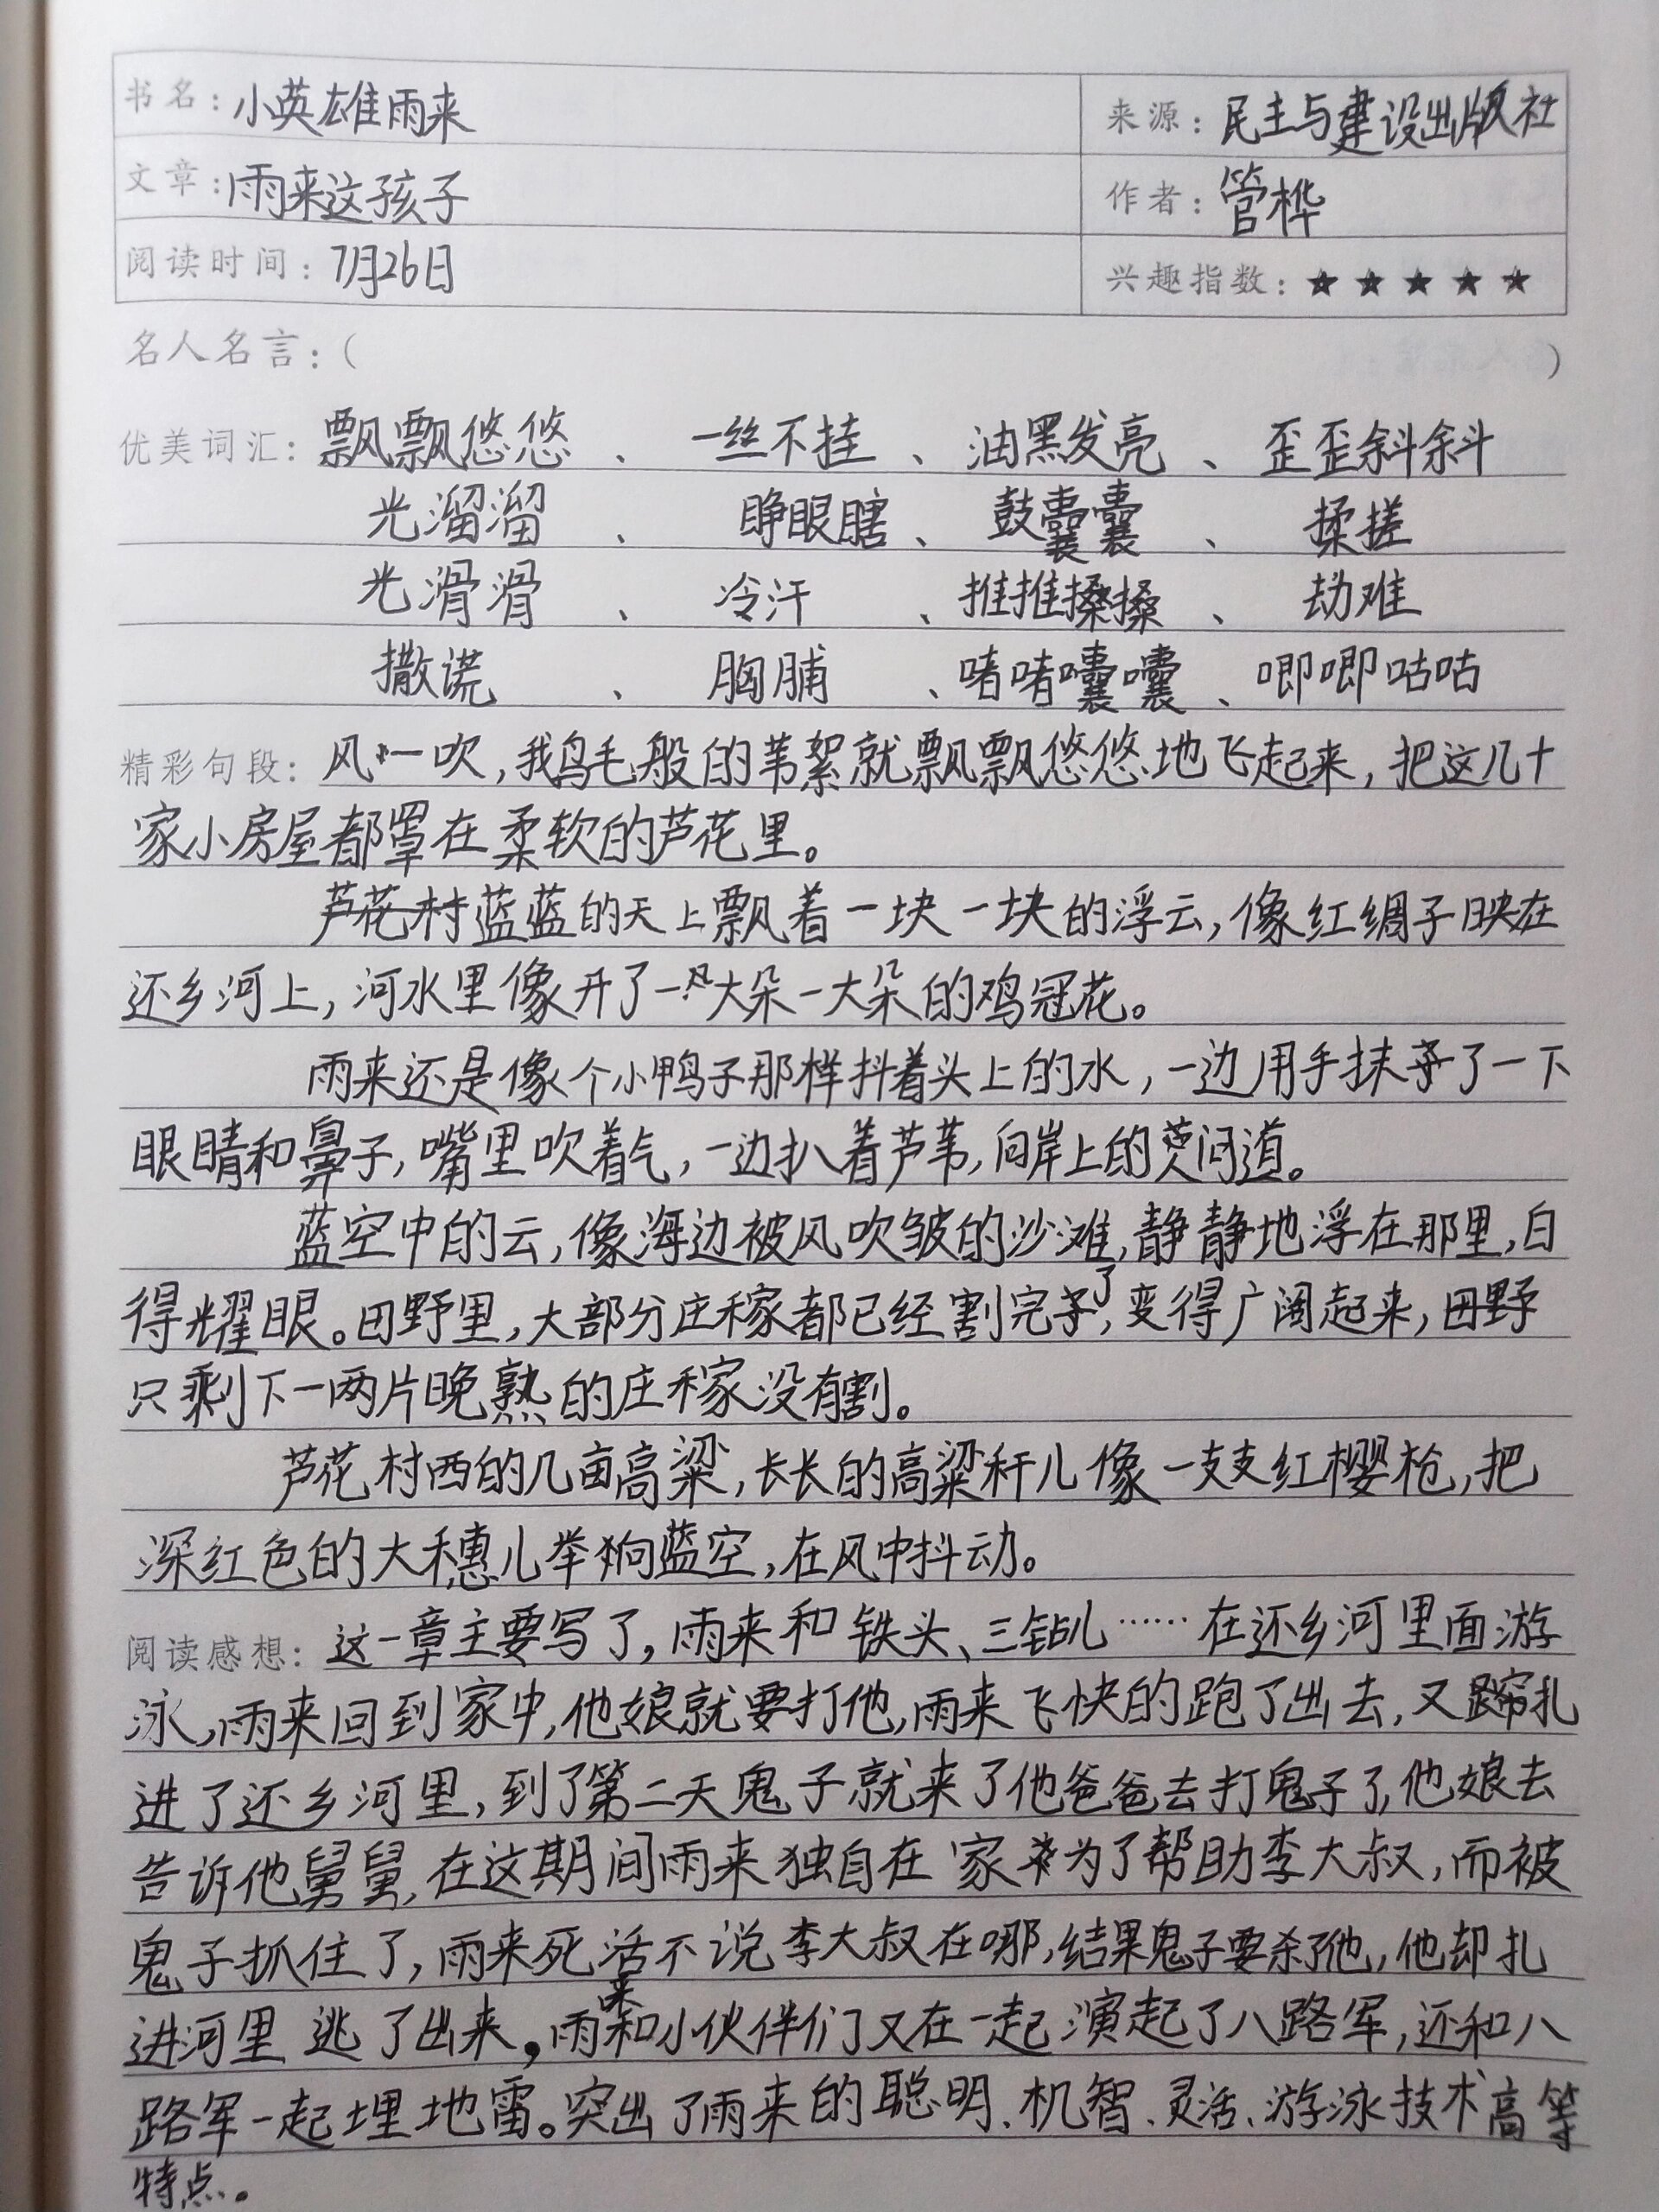 书名：小英雄雨来 来源：民主与建设出版社
文章：雨来这孩子 作者：管桦
阅读时间：7月26日 兴趣指数：★★★★★
名人名言：（ ）
优美词汇：飘飘悠悠、一丝不挂、油黑发亮、歪歪斜斜
光溜溜、睁眼瞎、鼓囊囊、揉搓
光滑滑、冷汗、推推搡搡、劫难
撒谎、胸脯、啫啫囔囔、唧唧咕咕
精彩句段：风一吹，鹅毛般的苇絮就飘飘悠悠地飞起来，把这几十
家小房屋都罩在柔软的芦花里。
芦花村蓝蓝的天上飘着一块一块的浮云，像红绸子映在
还乡河上，河水里像开了一大朵一大朵的鸡冠花。
雨来还是像个小鸭子那样抖着头上的水，一边用手抹了一下
眼睛和鼻子，嘴里吹着气，一边扒着芦苇，向岸上的问道。
蓝空中的云，像海边被风吹皱的沙滩，静静地浮在那里，白
得耀眼。田野里，大部分庄稼都已经割完了，变得广阔起来，田野
只剩下一两片晚熟的庄稼没有割。
芦花村西的几亩高粱，长长的高粱秆儿像一支支红樱枪，把
深红色的大穗儿举向蓝空，在风中抖动。
阅读感想：这一章主要写了，雨来和铁头、三钻儿……在还乡河里面游
泳，雨来回到家中，他娘就要打他，雨来飞快的跑了出去，又蹿扎
进了还乡河里，到了第二天鬼子就来了他爸爸去打鬼子了，他娘去
告诉他舅舅，在这期间雨来独自在家为了帮助李大叔，而被
鬼子抓住了，雨来死活不说李大叔在哪，结果鬼子要杀了他，他却扎
进河里逃了出来，雨来和小伙伴们又在一起演起了八路军，还和八
路军一起埋地雷。突出了雨来的聪明、机智、灵活、游泳技术高等
特点。